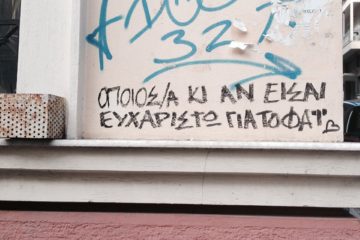 327
ΟΠΟΙΟΣ/Α ΚΙ ΑΝ ΕΙΣΑΙ
ΕΥΧΑΡΙΣΤΩ ΓΙΑ ΤΟ ΦΑΪ